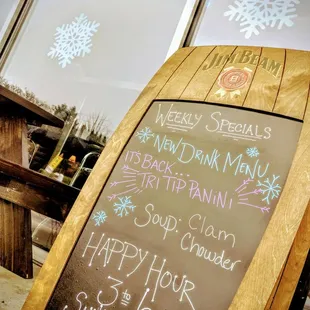 JIM BEAM
WEEKLY SPECIALS
NEW DRINK MENU
ITS BACK...
TRI TIP PANINI
SOUP: CLAM
CHOWDER
HAPPY HOUR
3 to